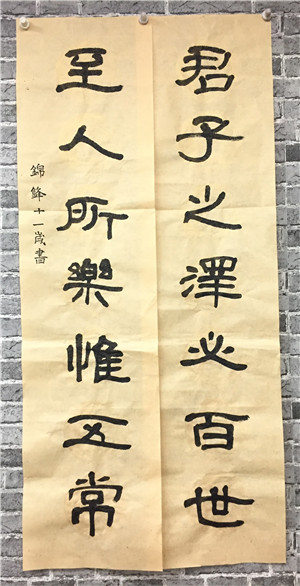 君子之澤必百世
至人所樂惟五常
錦鋒十一歲書